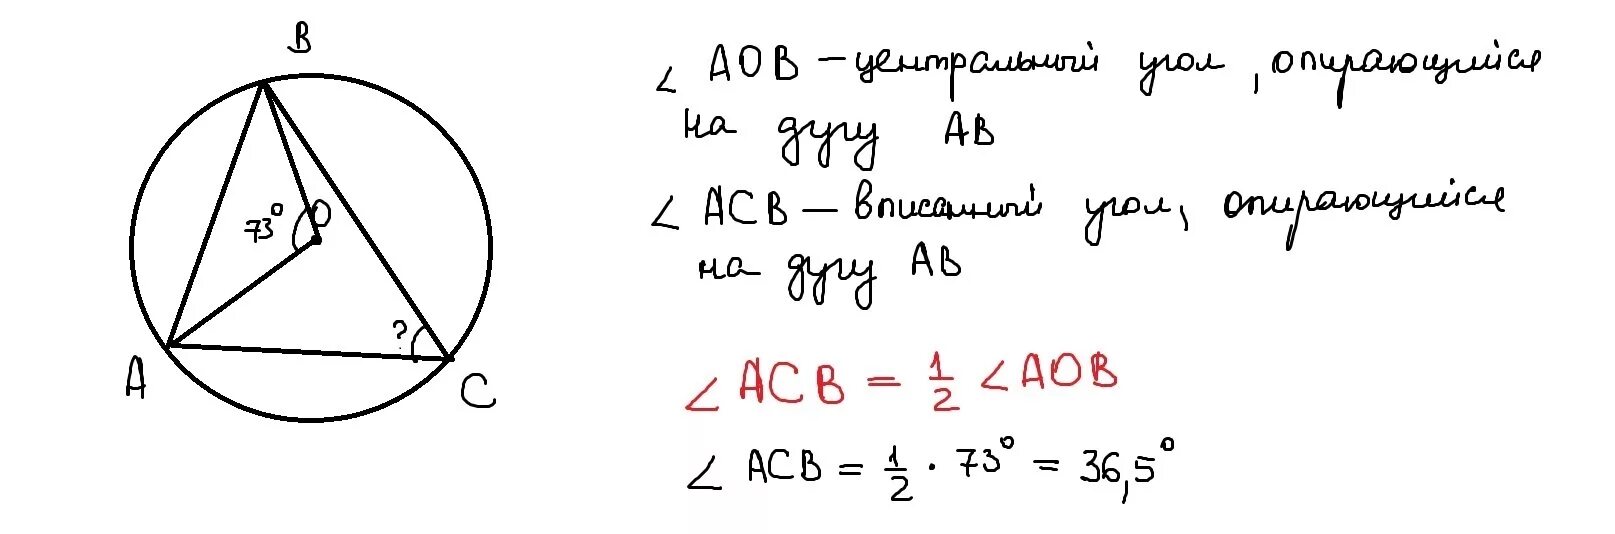 B
73° O
?
A
C
∠ AOB – центральный угол, опирающийся
на дугу AB
∠ ACB – вписанный угол, опирающийся
на дугу AB
∠ ACB = 1/2 ∠ AOB
∠ ACB = 1/2 · 73° = 36,5°